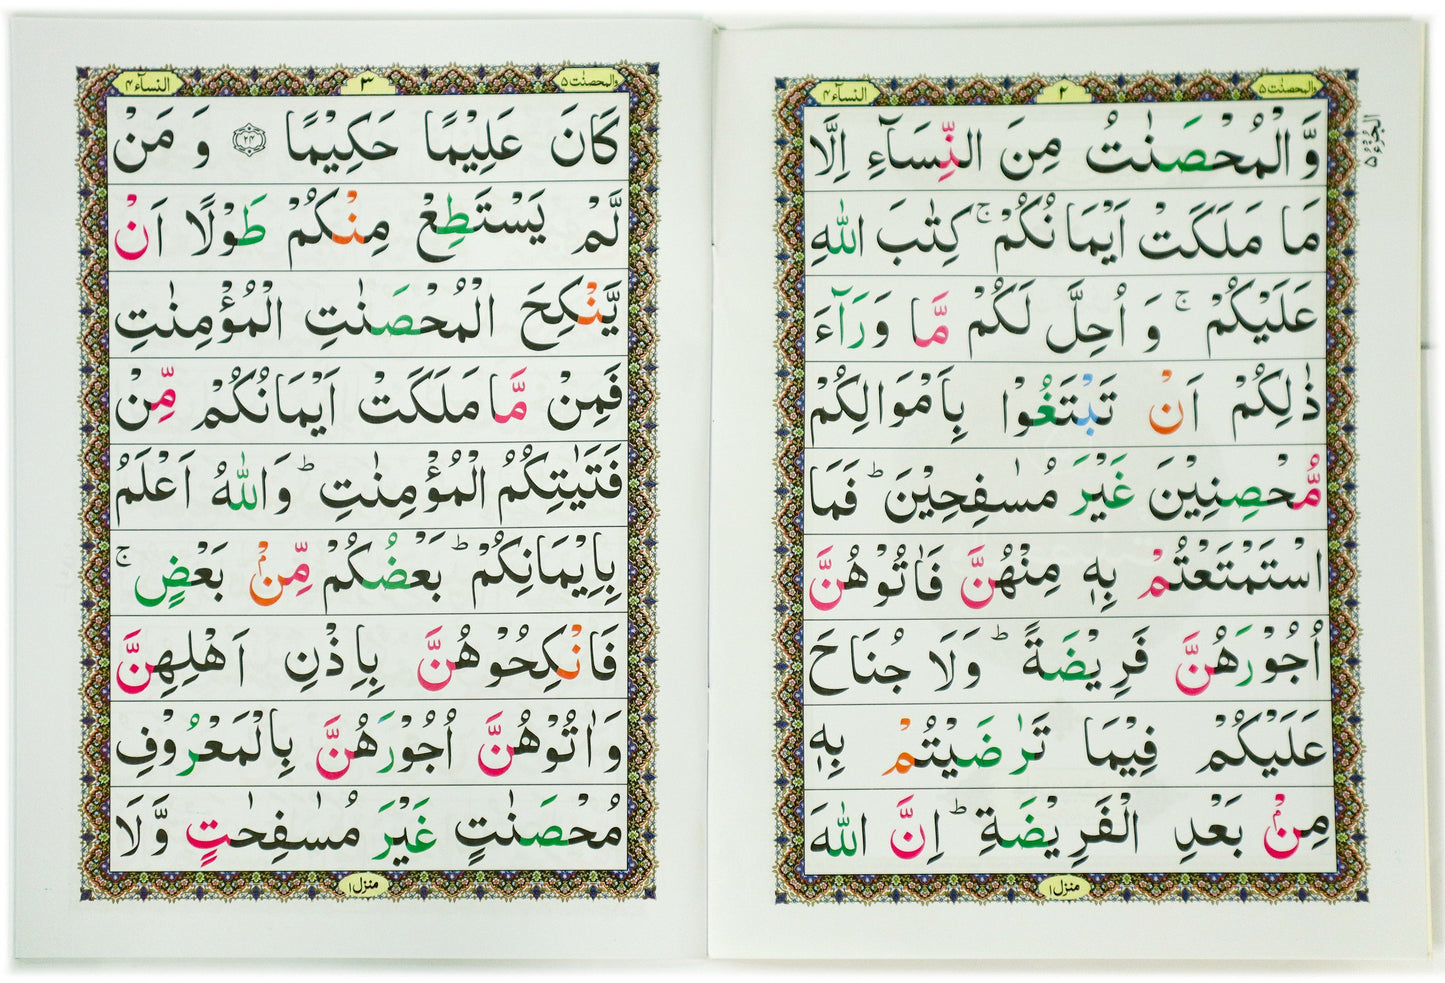 النسآء ۴
۲
والمحصنٰت ۵
الجزء ۵
وَّالْمُحْصَنٰتُ مِنَ النِّسَآءِ اِلَّا
مَا مَلَكَتْ اَيْمَانُكُمْ ۚ كِتٰبَ اللّٰهِ
عَلَيْكُمْ ۚ وَ اُحِلَّ لَكُمْ مَّا وَرَآءَ
ذٰلِكُمْ اَنْ تَبْتَغُوْا بِاَمْوَالِكُمْ
مُّحْصِنِيْنَ غَيْرَ مُسٰفِحِيْنَ ؕ فَمَا
اسْتَمْتَعْتُمْ بِهٖ مِنْهُنَّ فَاٰتُوْهُنَّ
اُجُوْرَهُنَّ فَرِيْضَةً ؕ وَلَا جُنَاحَ
عَلَيْكُمْ فِيْمَا تَرٰضَيْتُمْ بِهٖ
مِنْۢ بَعْدِ الْفَرِيْضَةِ ؕ اِنَّ اللّٰهَ
منزل ۱
النسآء ۴
۳
والمحصنٰت ۵
كَانَ عَلِيْمًا حَكِيْمًا ۲۴ وَ مَنْ
لَّمْ يَسْتَطِعْ مِنْكُمْ طَوْلًا اَنْ
يَّنْكِحَ الْمُحْصَنٰتِ الْمُؤْمِنٰتِ
فَمِنْ مَّا مَلَكَتْ اَيْمَانُكُمْ مِّنْ
فَتَيٰتِكُمُ الْمُؤْمِنٰتِ ؕ وَاللّٰهُ اَعْلَمُ
بِاِيْمَانِكُمْ ؕ بَعْضُكُمْ مِّنْۢ بَعْضٍ ۚ
فَانْكِحُوْهُنَّ بِاِذْنِ اَهْلِهِنَّ
وَاٰتُوْهُنَّ اُجُوْرَهُنَّ بِالْمَعْرُوْفِ
مُحْصَنٰتٍ غَيْرَ مُسٰفِحٰتٍ وَّلَا
منزل ۱